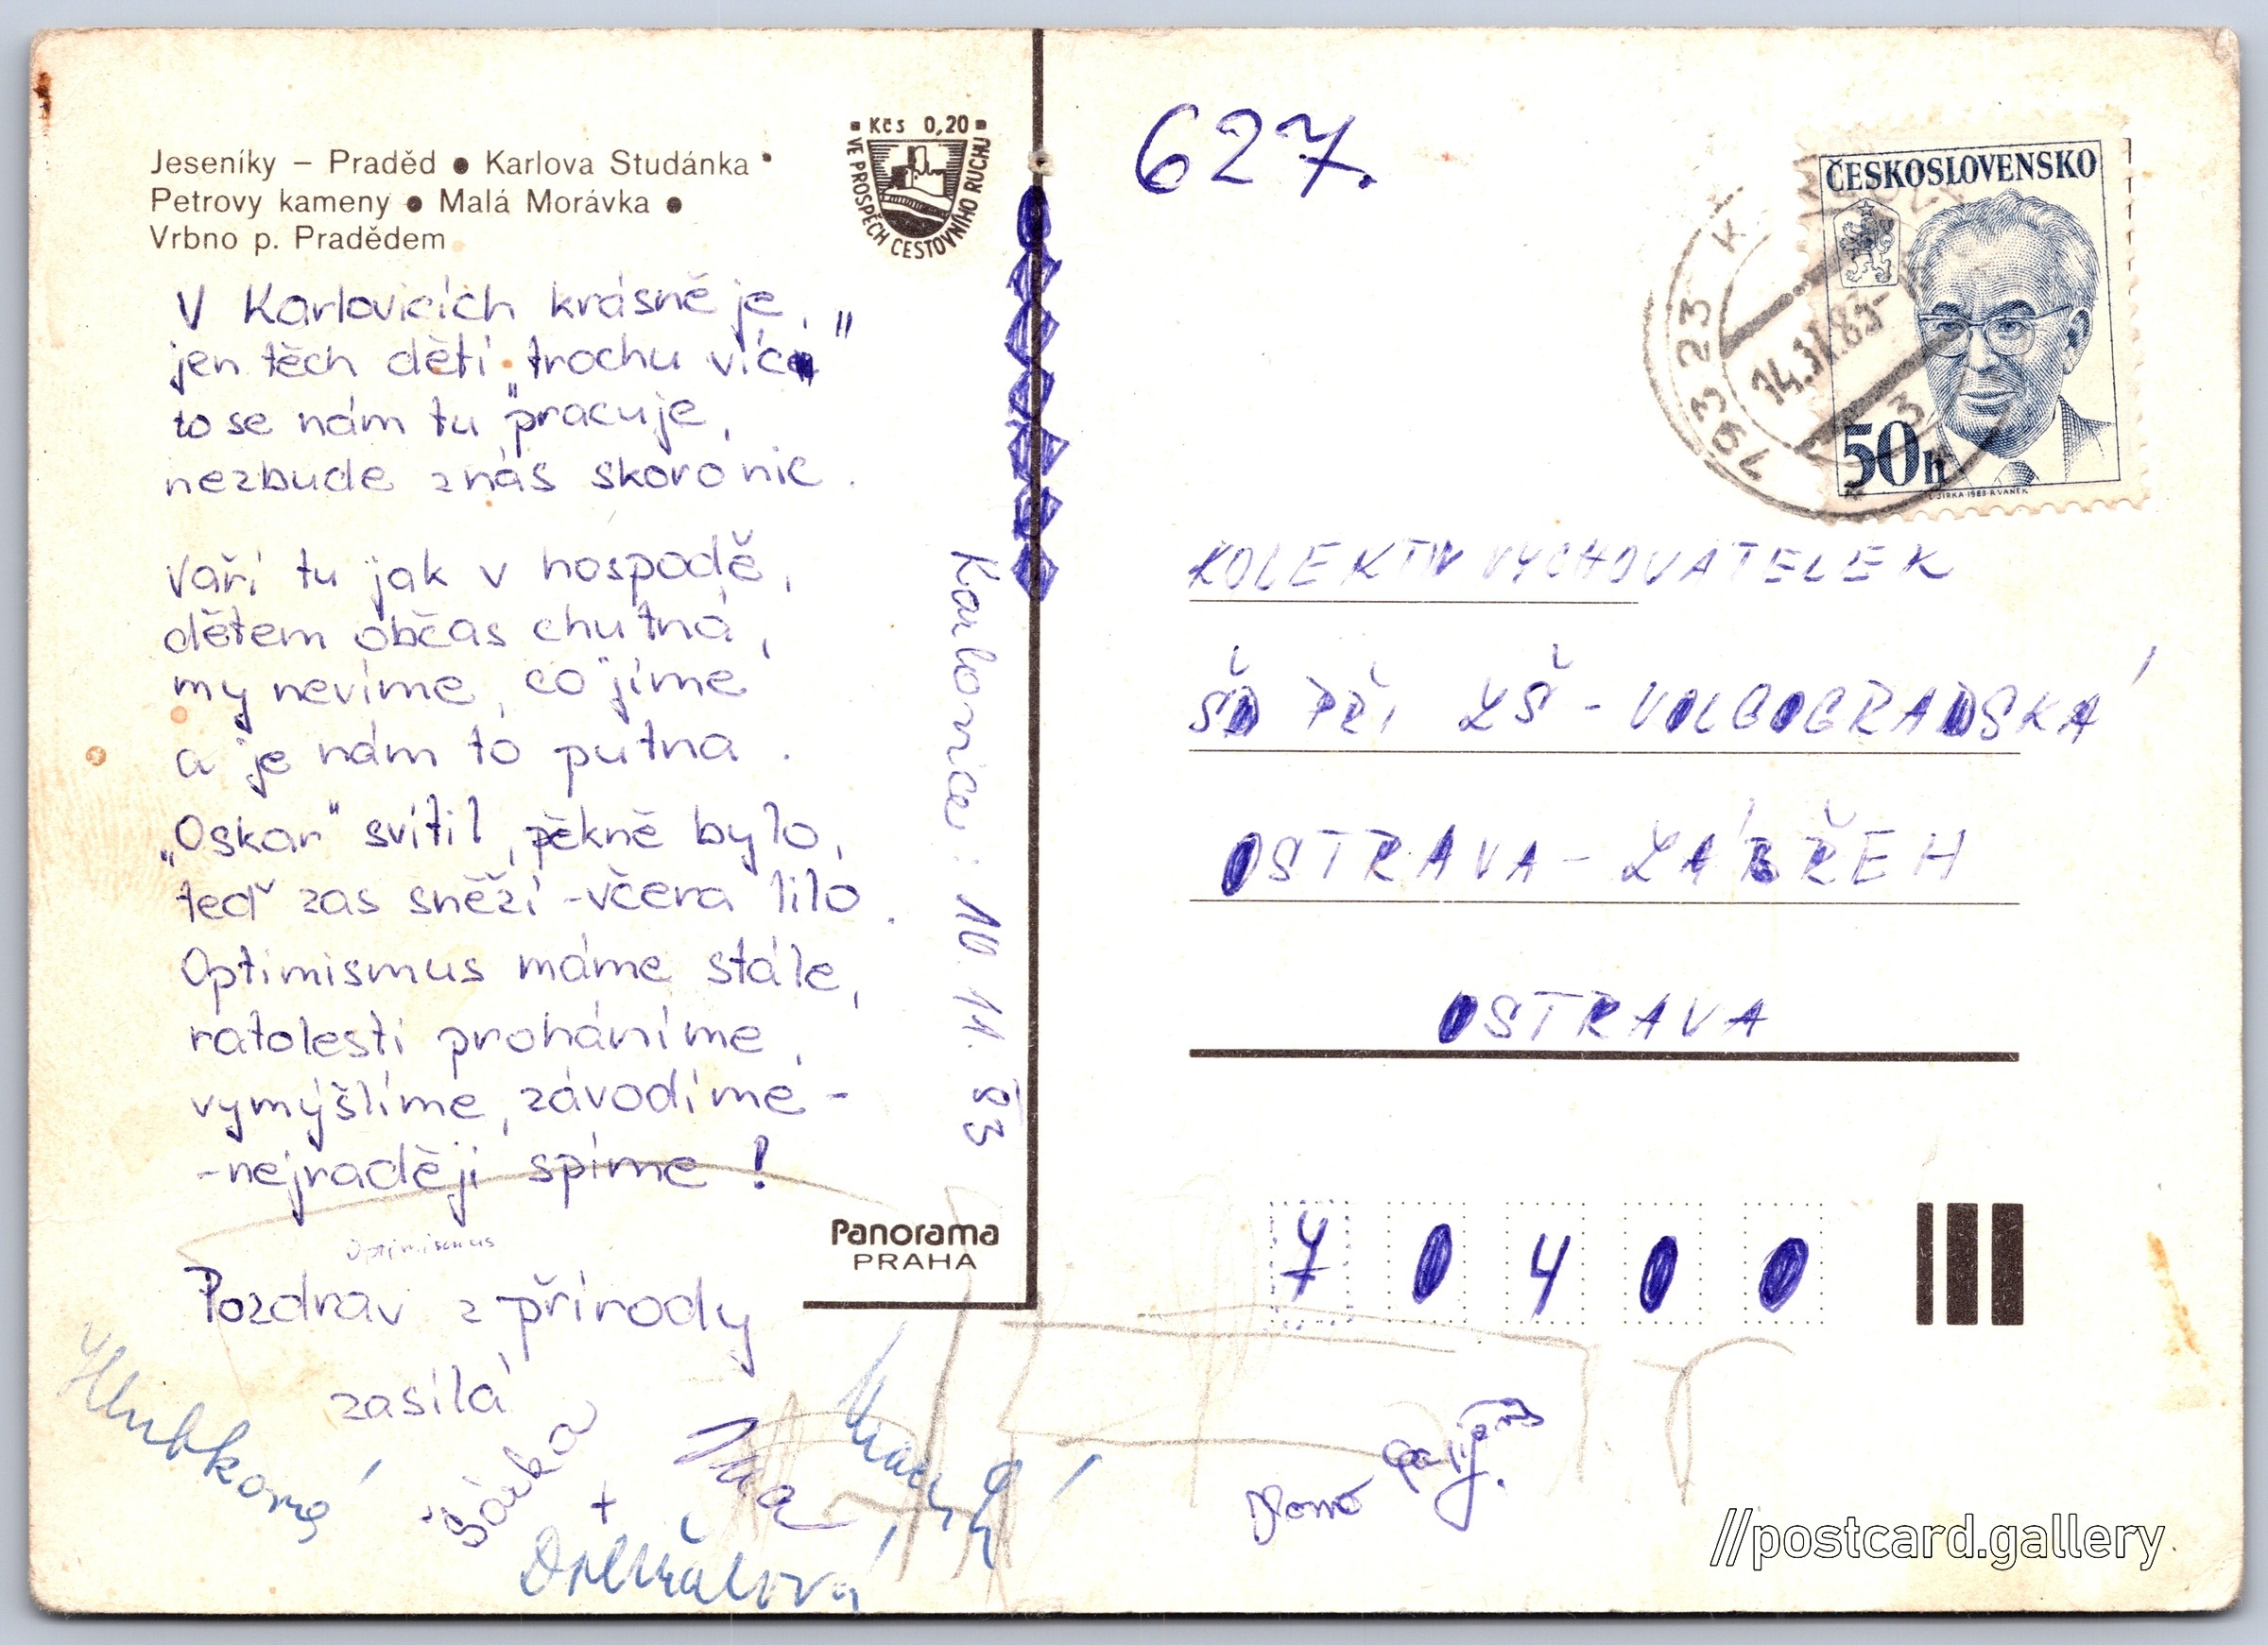 Jeseníky – Praděd ● Karlova Studánka
Petrovy kameny ● Malá Morávka ●
Vrbno p. Pradědem
Kčs 0,20
VE PROSPĚCH CESTOVNÍHO RUCHU
V Karlovicích krásně je,
jen těch dětí „trochu víc"
to se nám tu „pracuje,"
nezbude z nás skoro nic.
Vaří tu jak v hospodě,
dětem občas chutná,
my nevíme, co jíme
a je nám to putna.
„Oskar" svítil, pěkně bylo,
teď zas sněží - včera lilo.
Optimismus máme stále,
ratolesti proháníme,
vymýšlíme, závodíme -
- nejraději spíme!
Optimismus
Pozdrav z přírody
zasílá
Hlubková
Šárka
+
Karlovice: 10. 11. 83
Panorama
PRAHA
627.
ČESKOSLOVENSKO
50h
L. JIRKA · 1983 · R. VANĚK
793 23 K
14.11.83-
KOLEKTIV VYCHOVATELEK
ŠD PŘI ZŠ - VOLGOGRADSKÁ
OSTRAVA - ZÁBŘEH
OSTRAVA
704 00
//postcard.gallery